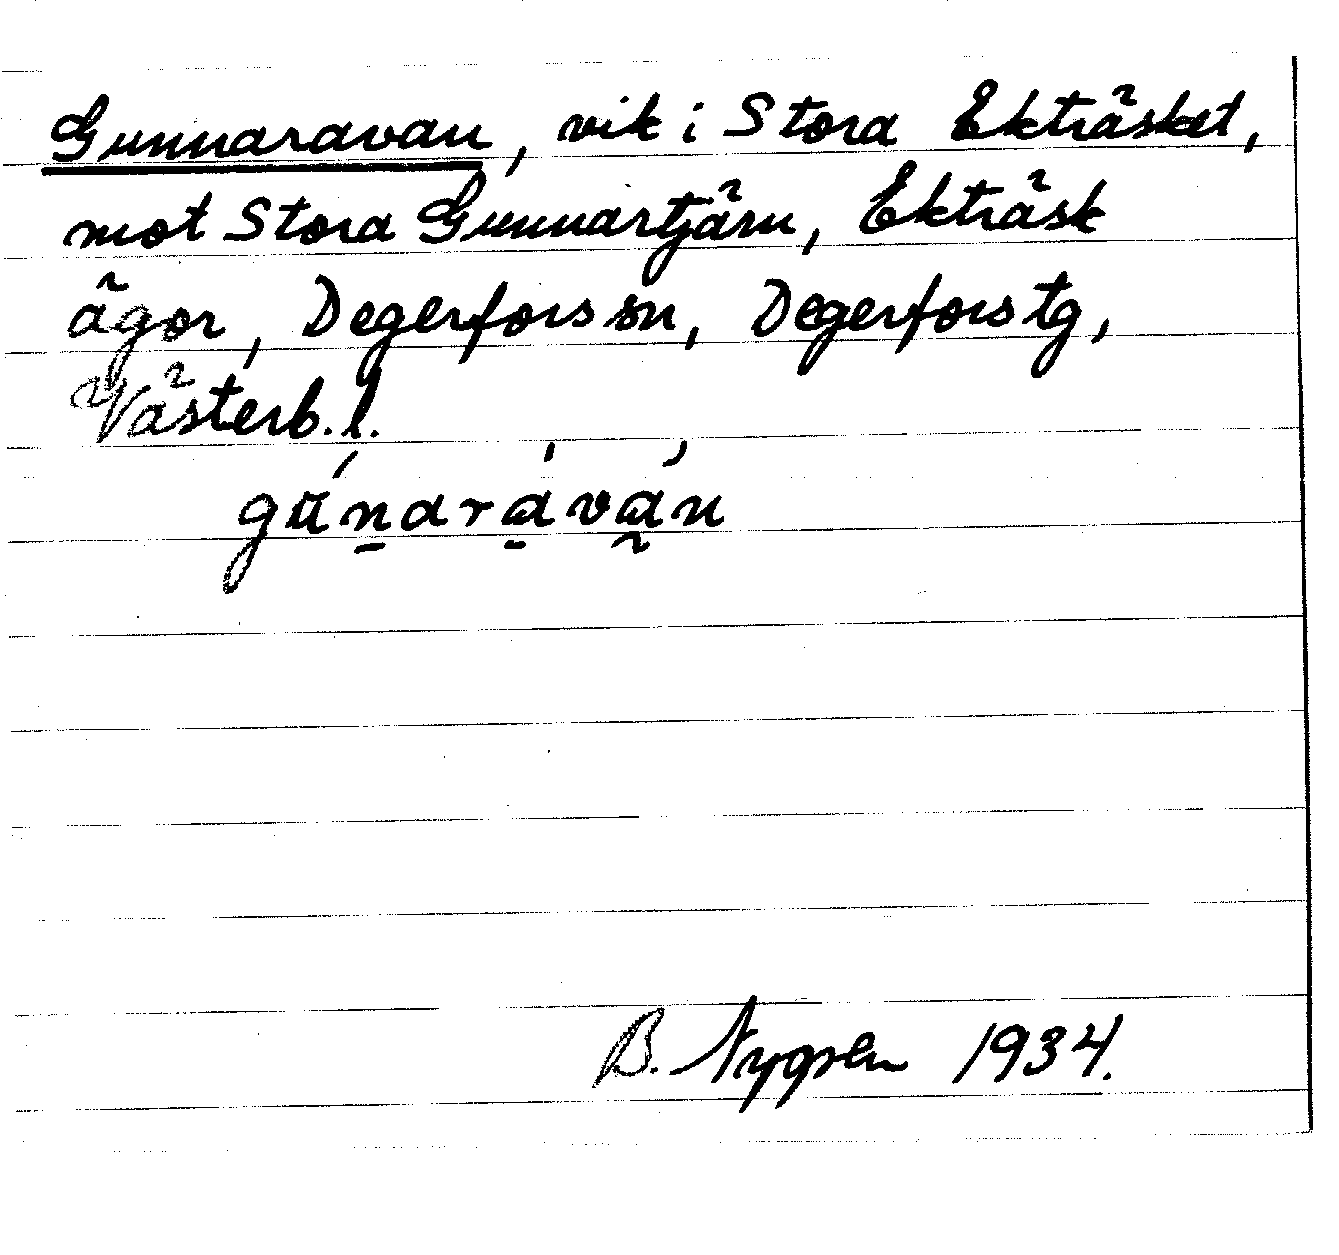 Gunnaravan, vik i Stora Ekträsket,
mot Stora Gunnartjärn, Ekträsk
ägor, Degerfors sn, Degerfors tg,
Västerb. l.
gunaravan
B. Nygren 1934.